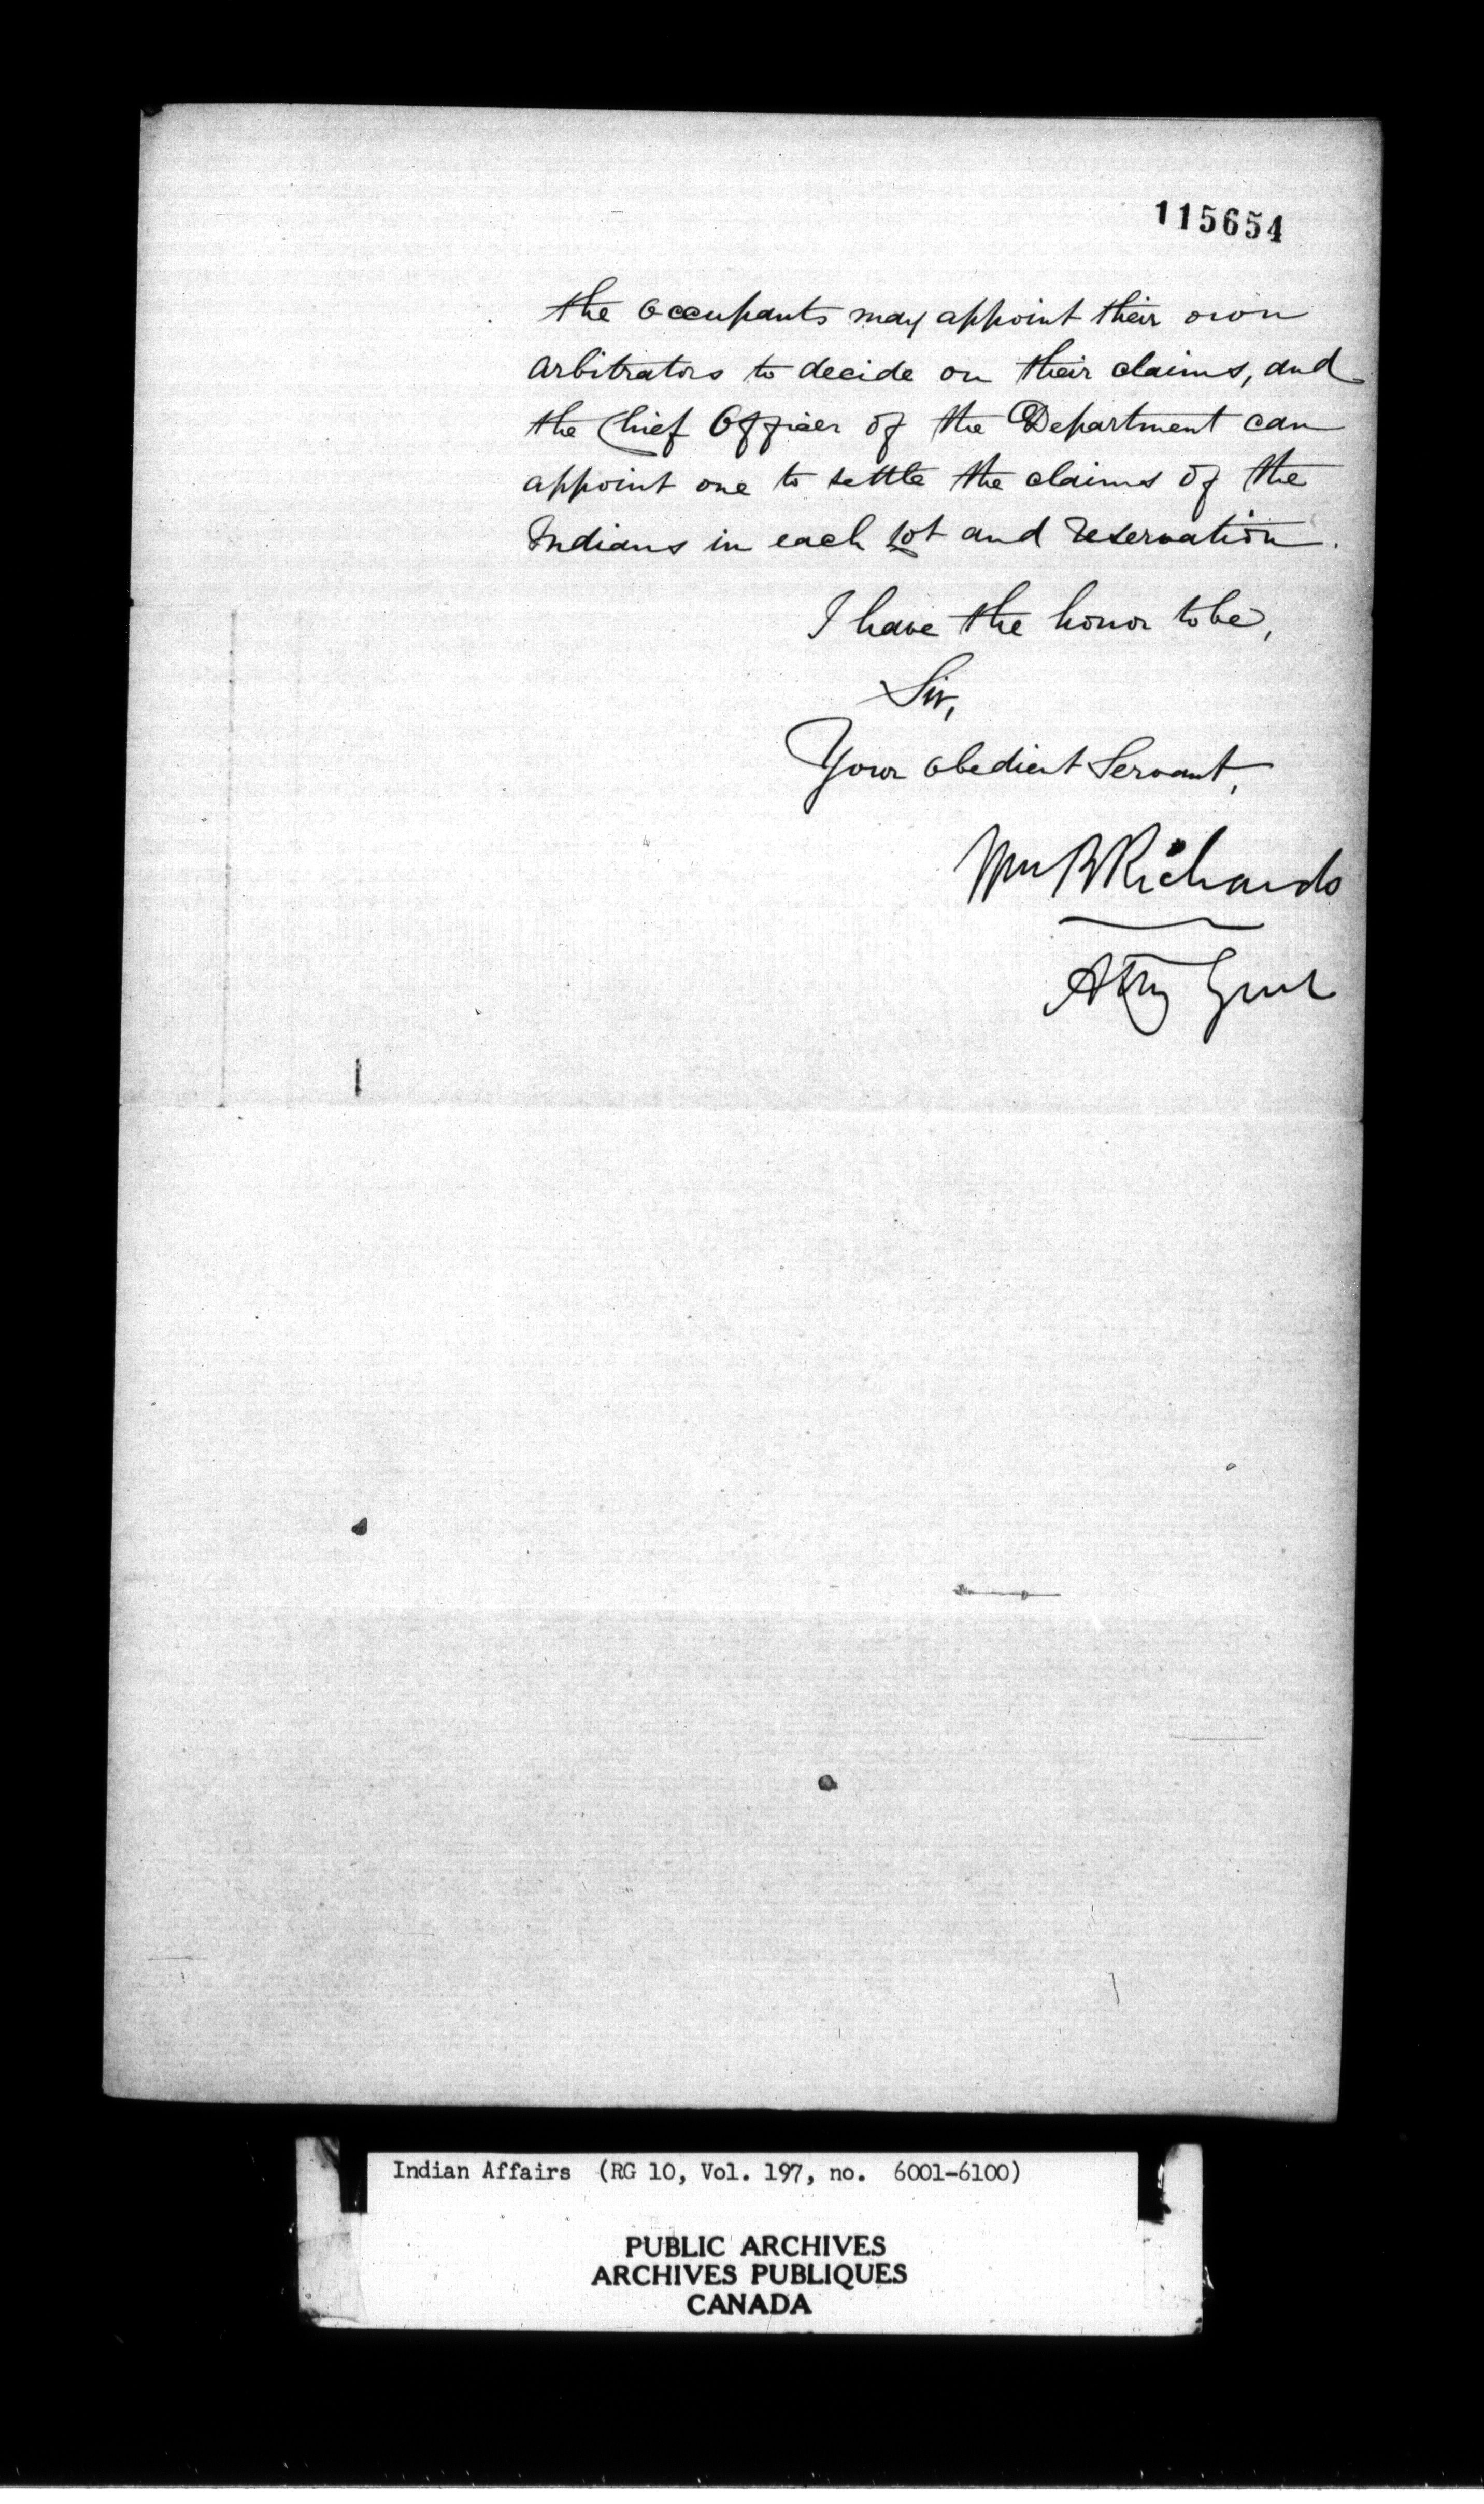 115654
the Occupants may appoint their own
Arbitrators to decide on their claims, and
the Chief Officer of the Department can
appoint one to settle the claims of the
Indians in each lot and reservation.
I have the honor to be,
Sir,
Your obedient Servant,
Wm B Richards
Atty Genl
Indian Affairs (RG 10, Vol. 197, no. 6001-6100)
PUBLIC ARCHIVES
ARCHIVES PUBLIQUES
CANADA